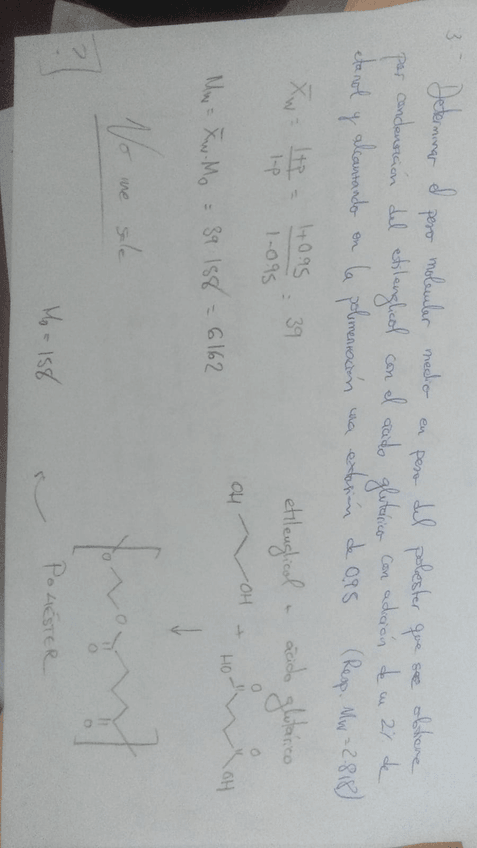 3- Determinar el peso molecular medio en peso del poliéster que se obtiene
por condensación del etilenglicol con el ácido glutárico con adición de un 2% de
etanol y alcanzando en la polimerización una extensión de 0,95 (Resp. Mw = 2.818)
X̄w = 1+p / 1-p = 1+0.95 / 1-0.95 = 39
etilenglicol + ácido glutárico
OH OH + HO O O OH
Mw = X̄w · M0 = 39 158 = 6162
↓
O O O O
No me sale
M0 = 158
POLIÉSTER
?